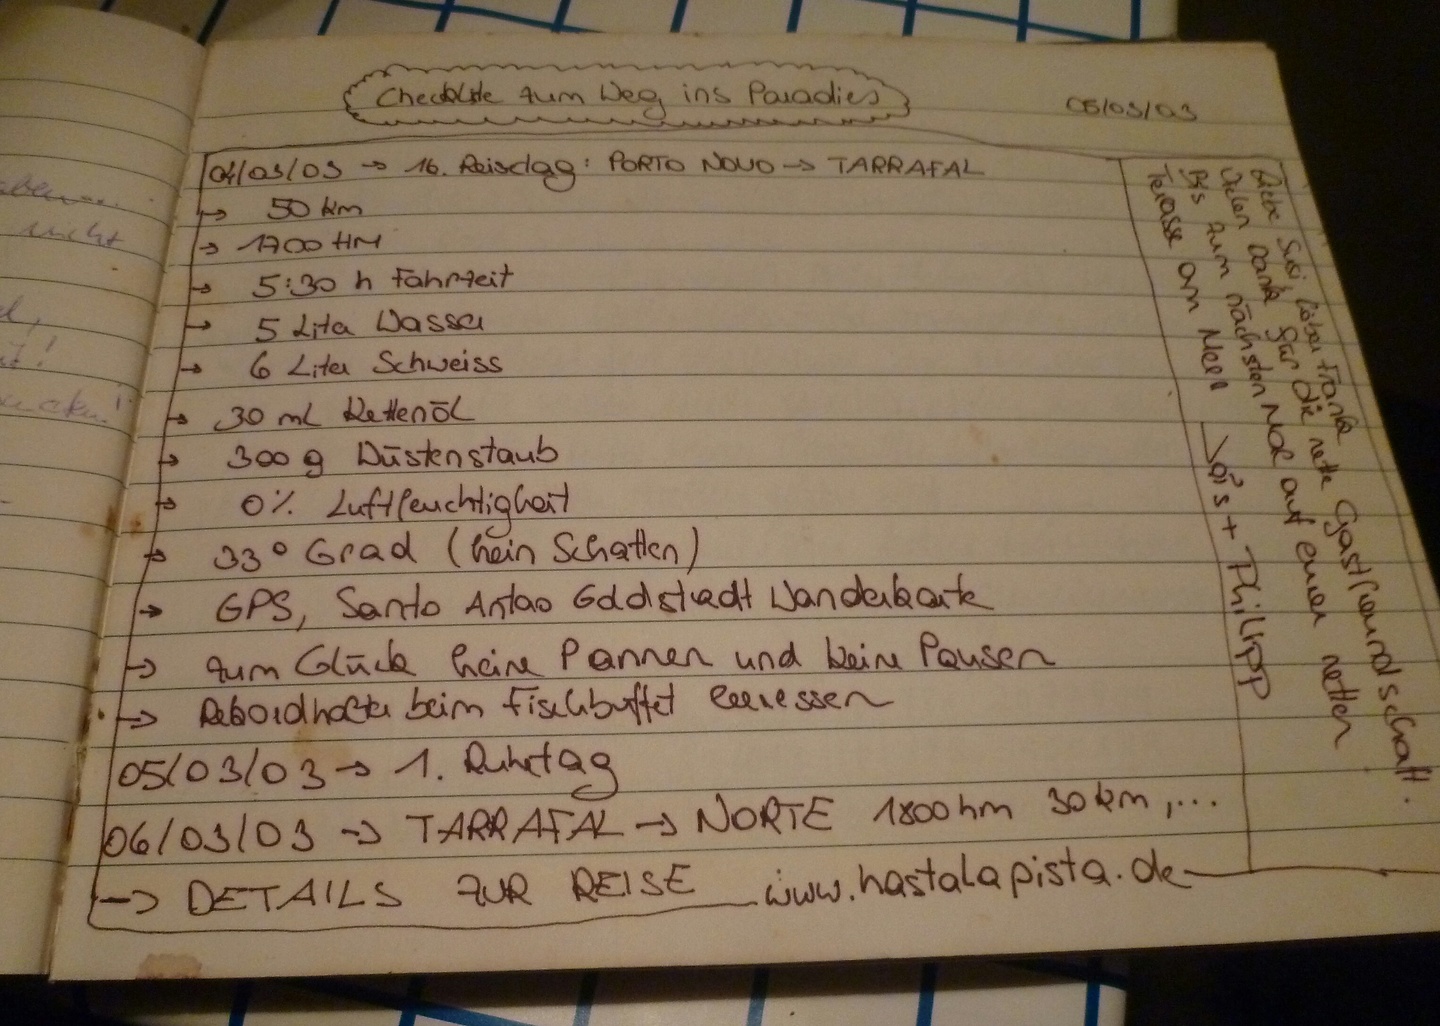 Checkliste zum Weg ins Paradies
05/03/03
04/03/03 → 16. Reisetag: PORTO NOVO → TARRAFAL
→ 50 km
→ 1700 HM
→ 5:30 h Fahrzeit
→ 5 Liter Wasser
→ 6 Liter Schweiss
→ 30 ml Kettenöl
→ 300 g Wüstenstaub
→ 0% Luftfeuchtigkeit
→ 33° Grad (kein Schatten)
→ GPS, Santo Antao Goldstadt Wanderkarte
→ zum Glück keine Pannen und keine Pausen
→ Rekordhalter beim Fischbuffet leeressen
05/03/03 → 1. Ruhetag
06/03/03 → TARRAFAL → NORTE 1800hm 30km,...
→ DETAILS ZUR REISE www.hastalapista.de
Liebe Susi, lieber Frank
Vielen Dank für die nette Gastfreundschaft.
Bis zum nächsten Mal auf einer netten
Terasse am Meer
+ PHILIPP